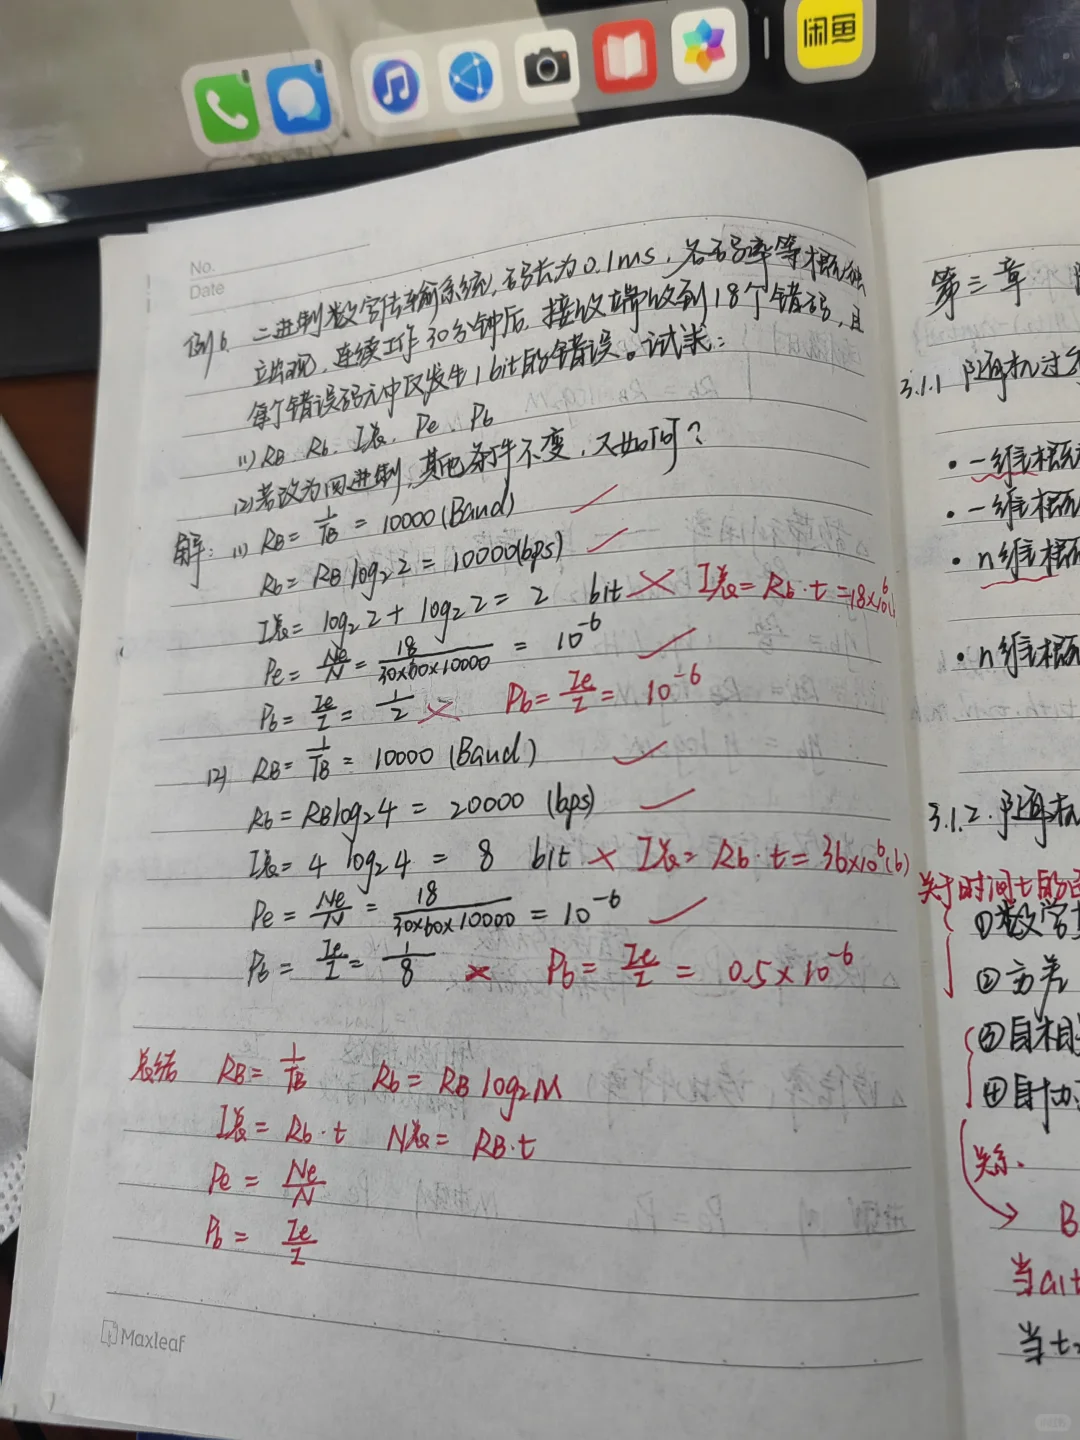 闲鱼
No.
Date
例6. 二进制数字传输系统,码长为0.1ms,各码率等概独
立出现,连续工作30分钟后,接收端收到18个错码,且
每个错误码元中仅发生1bit的错误。试求:
(1) RB、Rb、I总、Pe、Pb
(2) 若改为四进制,其他条件不变,又如何?
解: (1) RB = 1/TB = 10000 (Baud) ✓
Rb = RB log₂2 = 10000(bps) ✓
I总 = log₂2 + log₂2 = 2 bit × I总 = Rb·t = 18×10⁶(b)
Pe = Ne/N = 18/(30×60×10000) = 10⁻⁶ ✓
Pb = Ie/I = 1/2 × Pb = Ie/I = 10⁻⁶
(2) RB = 1/TB = 10000 (Baud) ✓
Rb = RB log₂4 = 20000 (bps) ✓
I总 = 4 log₂4 = 8 bit × I总 = Rb·t = 36×10⁶(b)
Pe = Ne/N = 18/(30×60×10000) = 10⁻⁶ ✓
Pb = Ie/I = 1/8 × Pb = Ie/I = 0.5×10⁻⁶
总结 RB = 1/TB Rb = RB log₂M
I总 = Rb·t N总 = RB·t
Pe = Ne/N
Pb = Ie/I
Maxleaf
第三章
3.1.1 随机过
• 一维概
• 一维概
• n维概
• n维概
3.1.2. 随机
关于时间t的
①数学
②方差
③自相
④自协
关系.
B
当a(t
当t